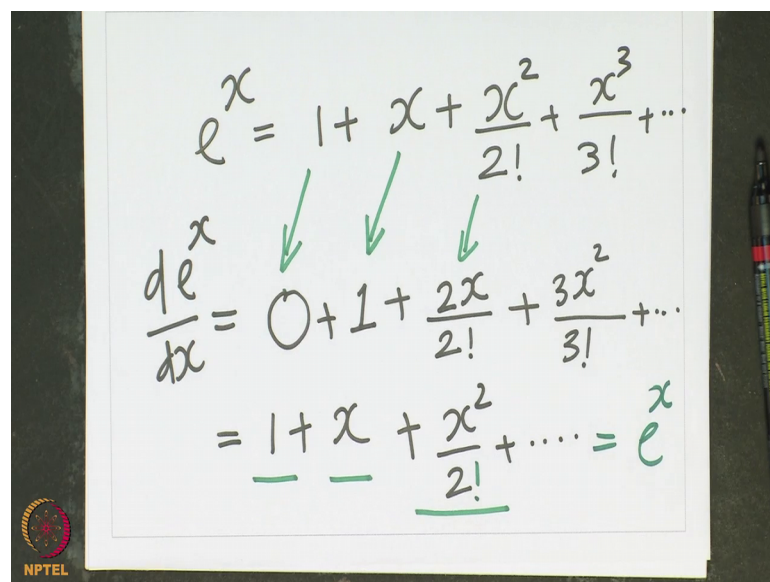 e^x = 1 + x + x^2/2! + x^3/3! + ...
de^x/dx = 0 + 1 + 2x/2! + 3x^2/3! + ...
= 1 + x + x^2/2! + .... = e^x
NPTEL